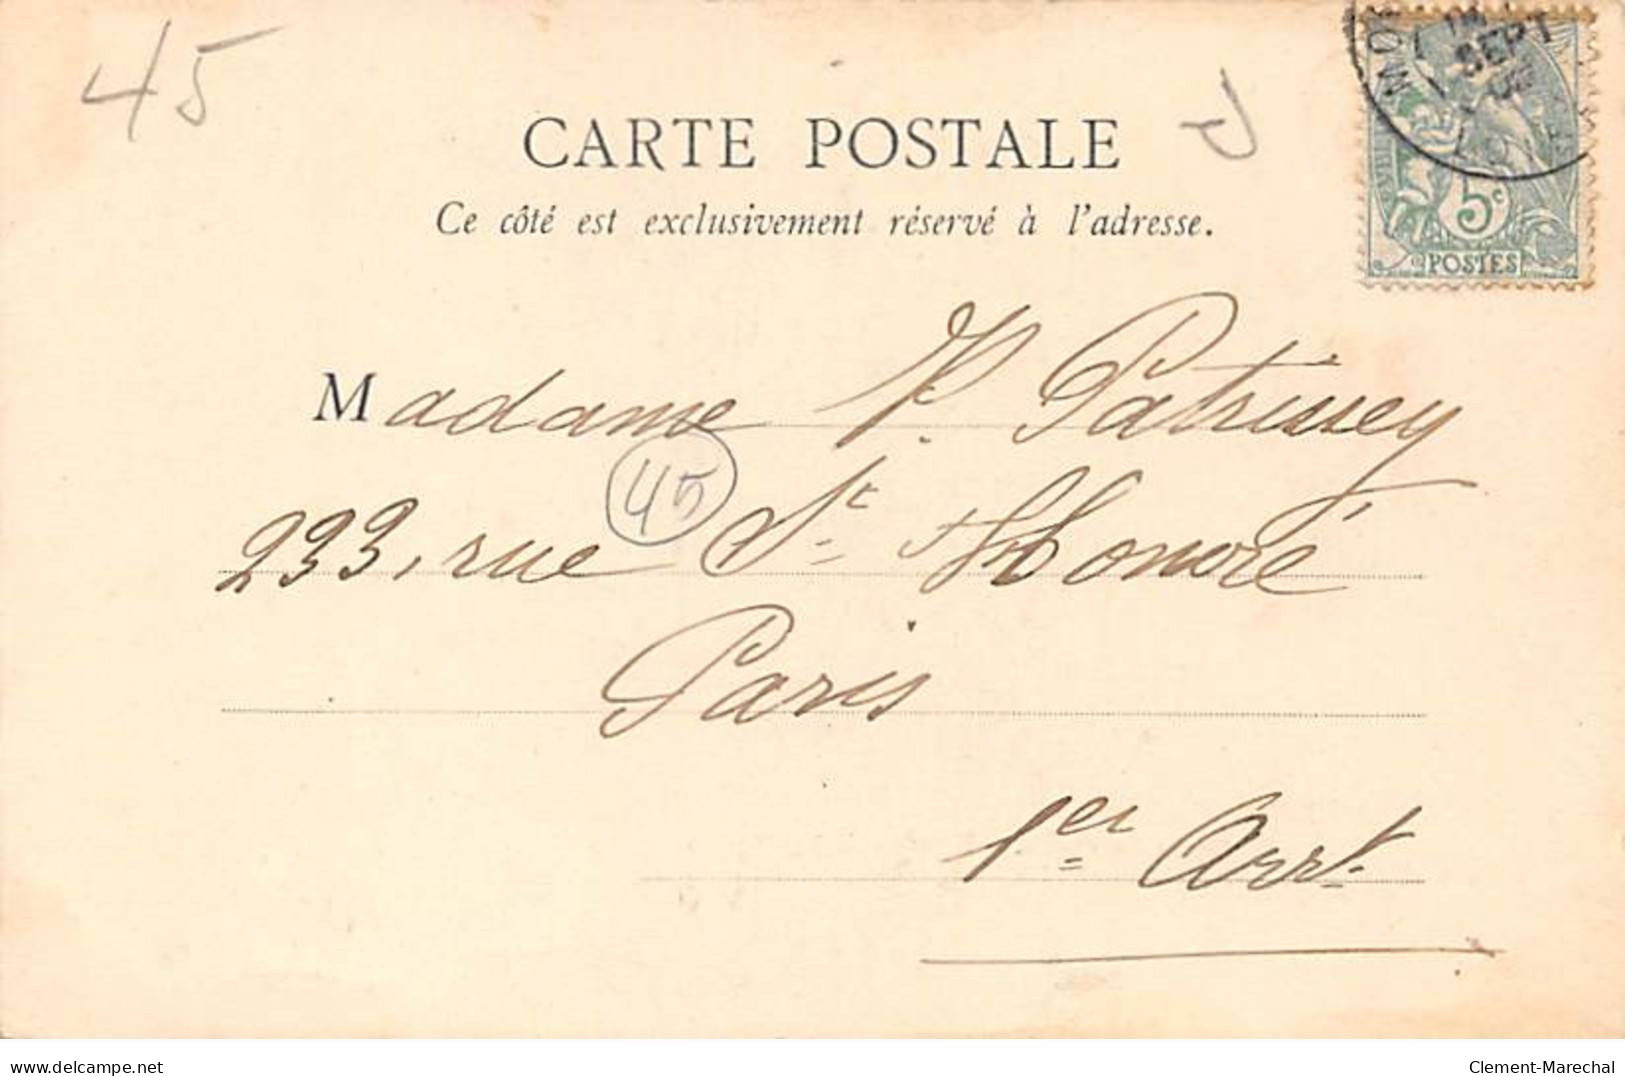 45
CARTE POSTALE
Ce côté est exclusivement réservé à l'adresse.
SEPT
5c
POSTES
Madame P. Patrissey
45
233, rue St Honoré
Paris
1er Arrt
delcampe.net
Clement-Marechal